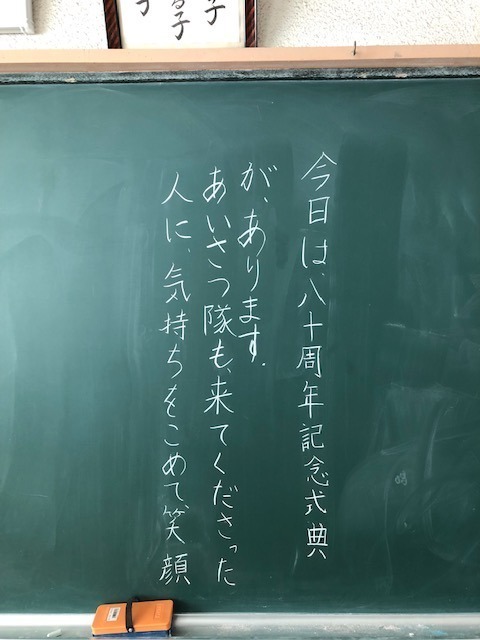 今日は、八十周年記念式典
が、あります。
あいさつ隊も、来てくださった
人に、気持ちをこめて、笑顔
子
る子
子